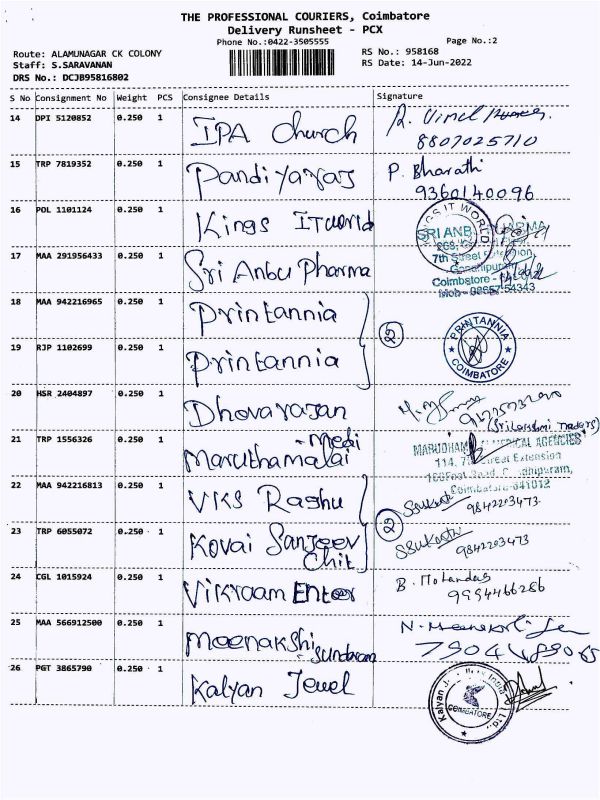 THE PROFESSIONAL COURIERS, Coimbatore
Delivery Runsheet - PCX
Phone No.:0422-3505555
Page No.:2
Route: ALAMUNAGAR CK COLONY
Staff: S.SARAVANAN
DRS No.: DCJB95816802
RS No.: 958168
RS Date: 14-Jun-2022
S No Consignment No Weight PCS Consignee Details Signature
14 DPI 5120852 0.250 1 IPA Church R. Vimel Kumar
8807025710
15 TRP 7819352 0.250 1 Pandiyaraj P. Bharathi
9360140096
16 POL 1101124 0.250 1 Kings IT world
IT WORLD
SRI ANB PHARMA
7th Street Extension
17 MAA 291956433 0.250 1 Sri Anbu Pharma
Gandhipuram
Coimbatore -
Mob - 98657 54343
18 MAA 942216965 0.250 1 Printannia
PRINTANNIA
COIMBATORE
19 RJP 1102699 0.250 1 Printannia
20 HSR 2404897 0.250 1 Dhovarajan
(Sri Lakshmi Traders)
21 TRP 1556326 0.250 1 Maruthamalai - Medi
MEDICAL AGENCIES
114, 7th Street Extension
100 Feet Road, Gandhipuram,
Coimbatore-641012
22 MAA 942216813 0.250 1 VKS Raghu Ssukanth
9842203473
23 TRP 6055072 0.250 1 Kovai Sanjeev
Chit
Ssukanth
9842203473
24 CGL 1015924 0.250 1 Vikraam Enter B. Mohandas
9994466286
25 MAA 566912500 0.250 1 Meenakshi
Sundaram
7904489065
26 PGT 3865790 0.250 1 Kalyan Jewel
Kalyan
COIMBATORE